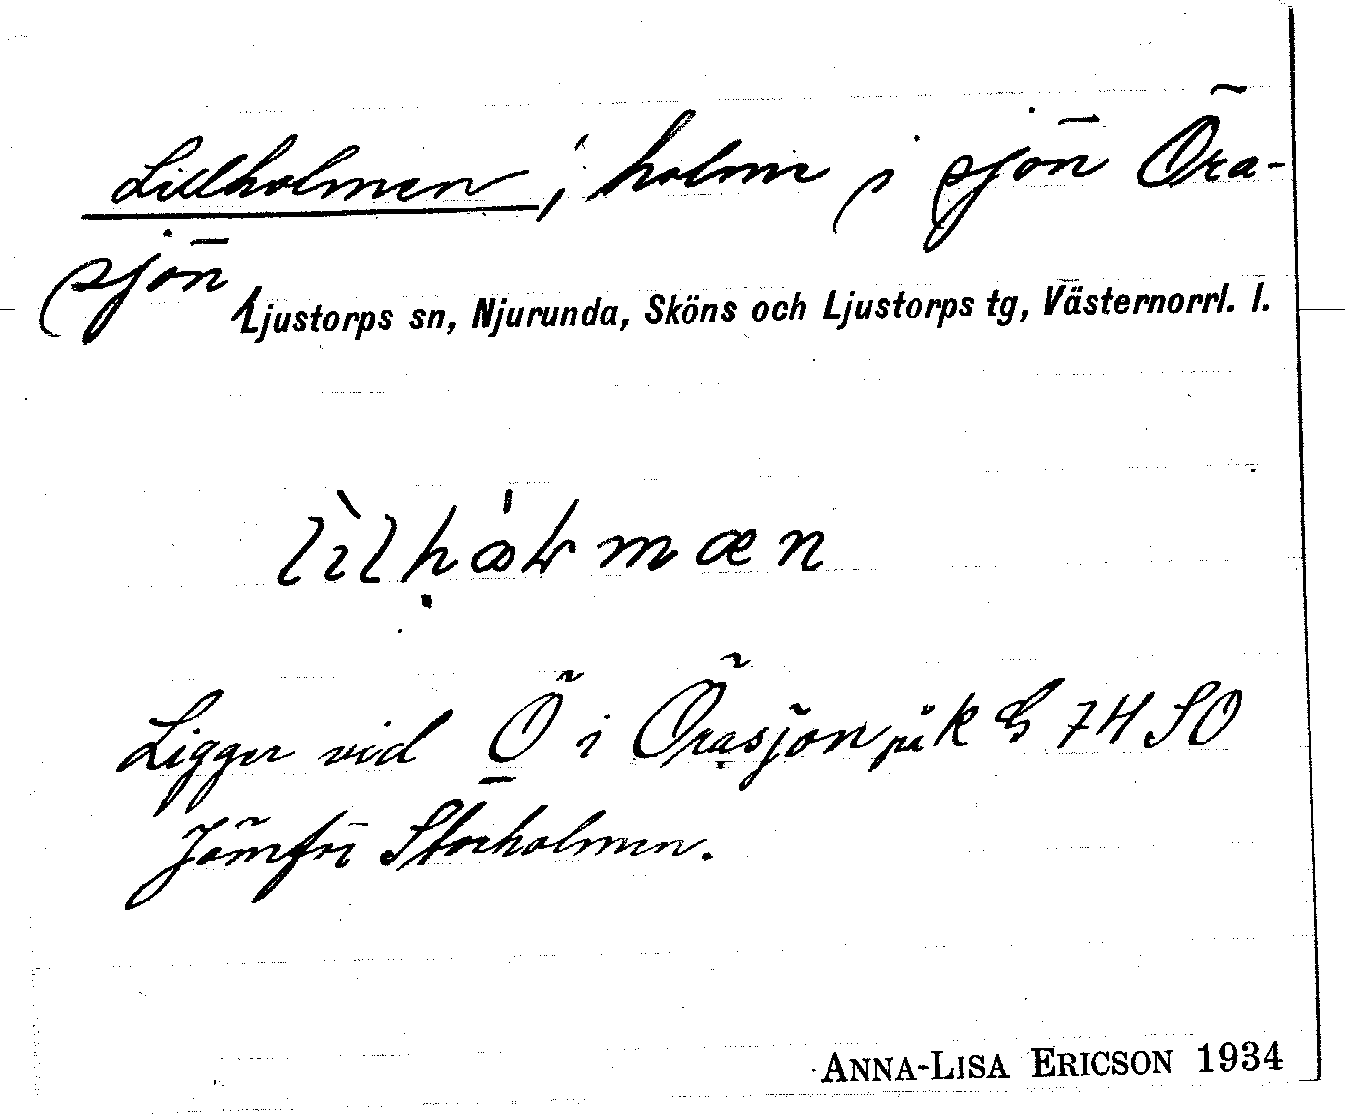 Lillholmen, holme i sjön Öra-
sjön
Ljustorps sn, Njurunda, Sköns och Ljustorps tg, Västernorrl. l.
Ligger vid Ö i Örasjön på k G 74 SO
Jämför Storholmen.
ANNA-LISA ERICSON 1934